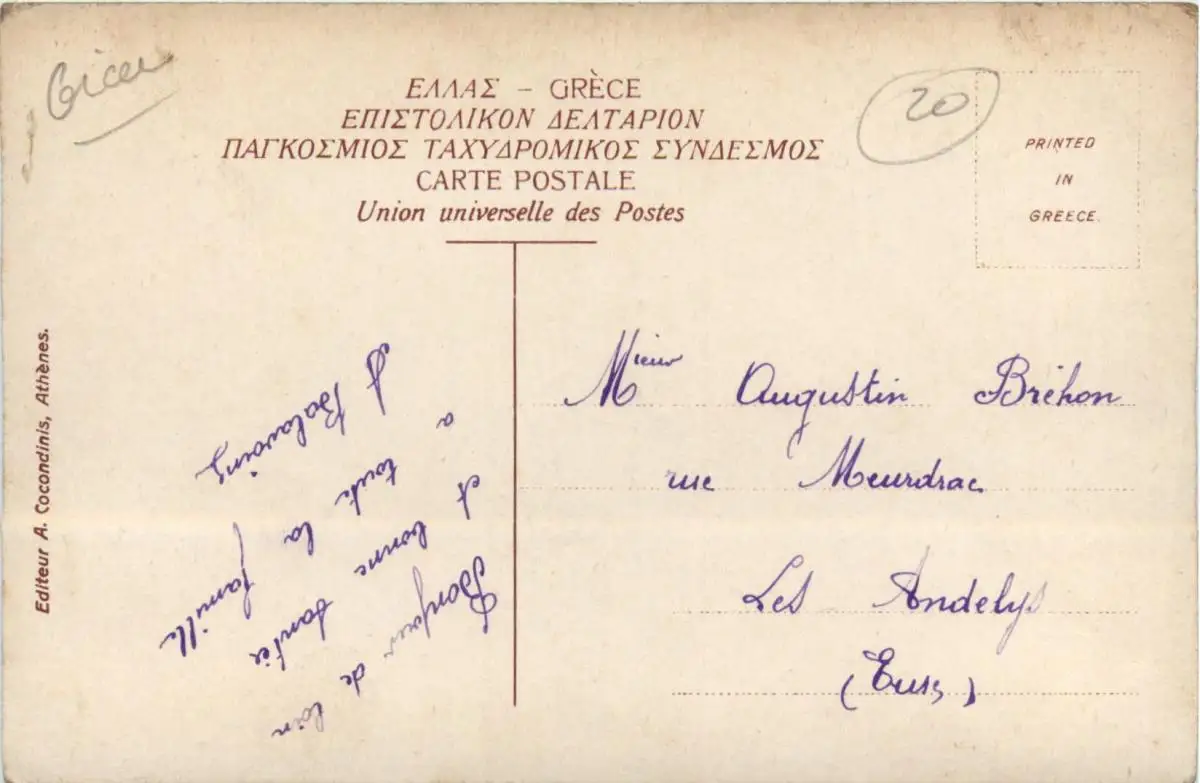 20
ΕΛΛΑΣ – GRÈCE
ΕΠΙΣΤΟΛΙΚΟΝ ΔΕΛΤΑΡΙΟΝ
ΠΑΓΚΟΣΜΙΟΣ ΤΑΧΥΔΡΟΜΙΚΟΣ ΣΥΝΔΕΣΜΟΣ
CARTE POSTALE
Union universelle des Postes
PRINTED
IN
GREECE.
Editeur A. Cocondinis, Athènes.
Bonjour de loin
et bonne santée
a toute la famille
Mieur Augustin Bréhon
rue Meurdrac
Les Andelys
(Eure)